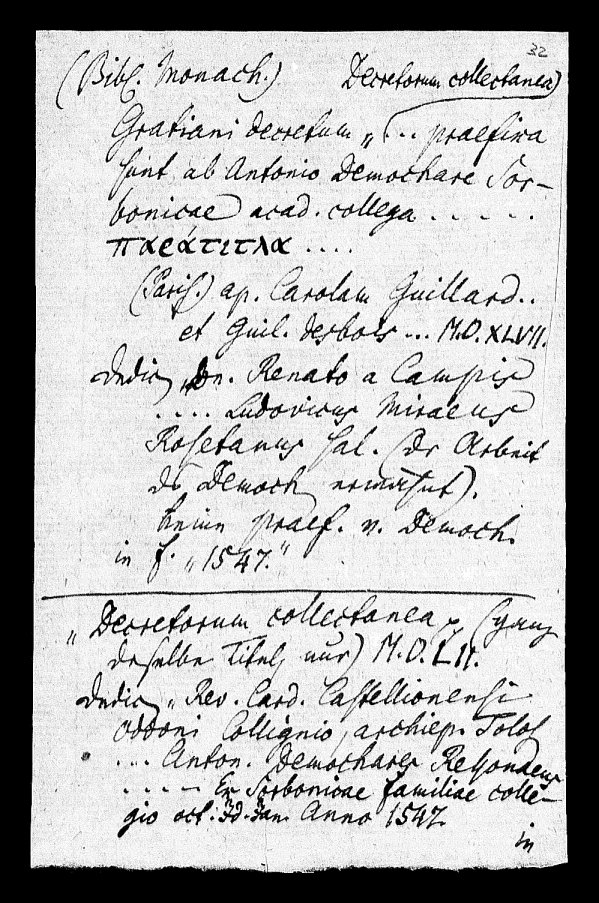 32
(Bibl. Monach.) Decretorum collectanea)
Gratiani decretum „ ... praefixa
sunt ab Antonio Demochare Sor-
bonicae acad. collega . . . . . .
παράτιτλα ....
(Paris.) ap. Carolam Guillard ..
et Guil. desbois ... M.D.XLVII.
Dedic. „Dn. Renato a Campis
.... Ludovicus Miraeus
Rosetanus sal. (der Arbeit
des Democh. erwähnt).
keine praef. v. Democh.
in f. „1547."
„Decretorum collectanea (ganz
derselbe Titel, nur) M.D.LII.
Dedic. „Rev. Card. Castellionensi
Oddoni Collignio, archiep. Tolos.
... Anton. Demochares Ressonaeus
..... Ex Sorbonicae familiae colle-
gio oct. Id. Jan. Anno 1547.
in